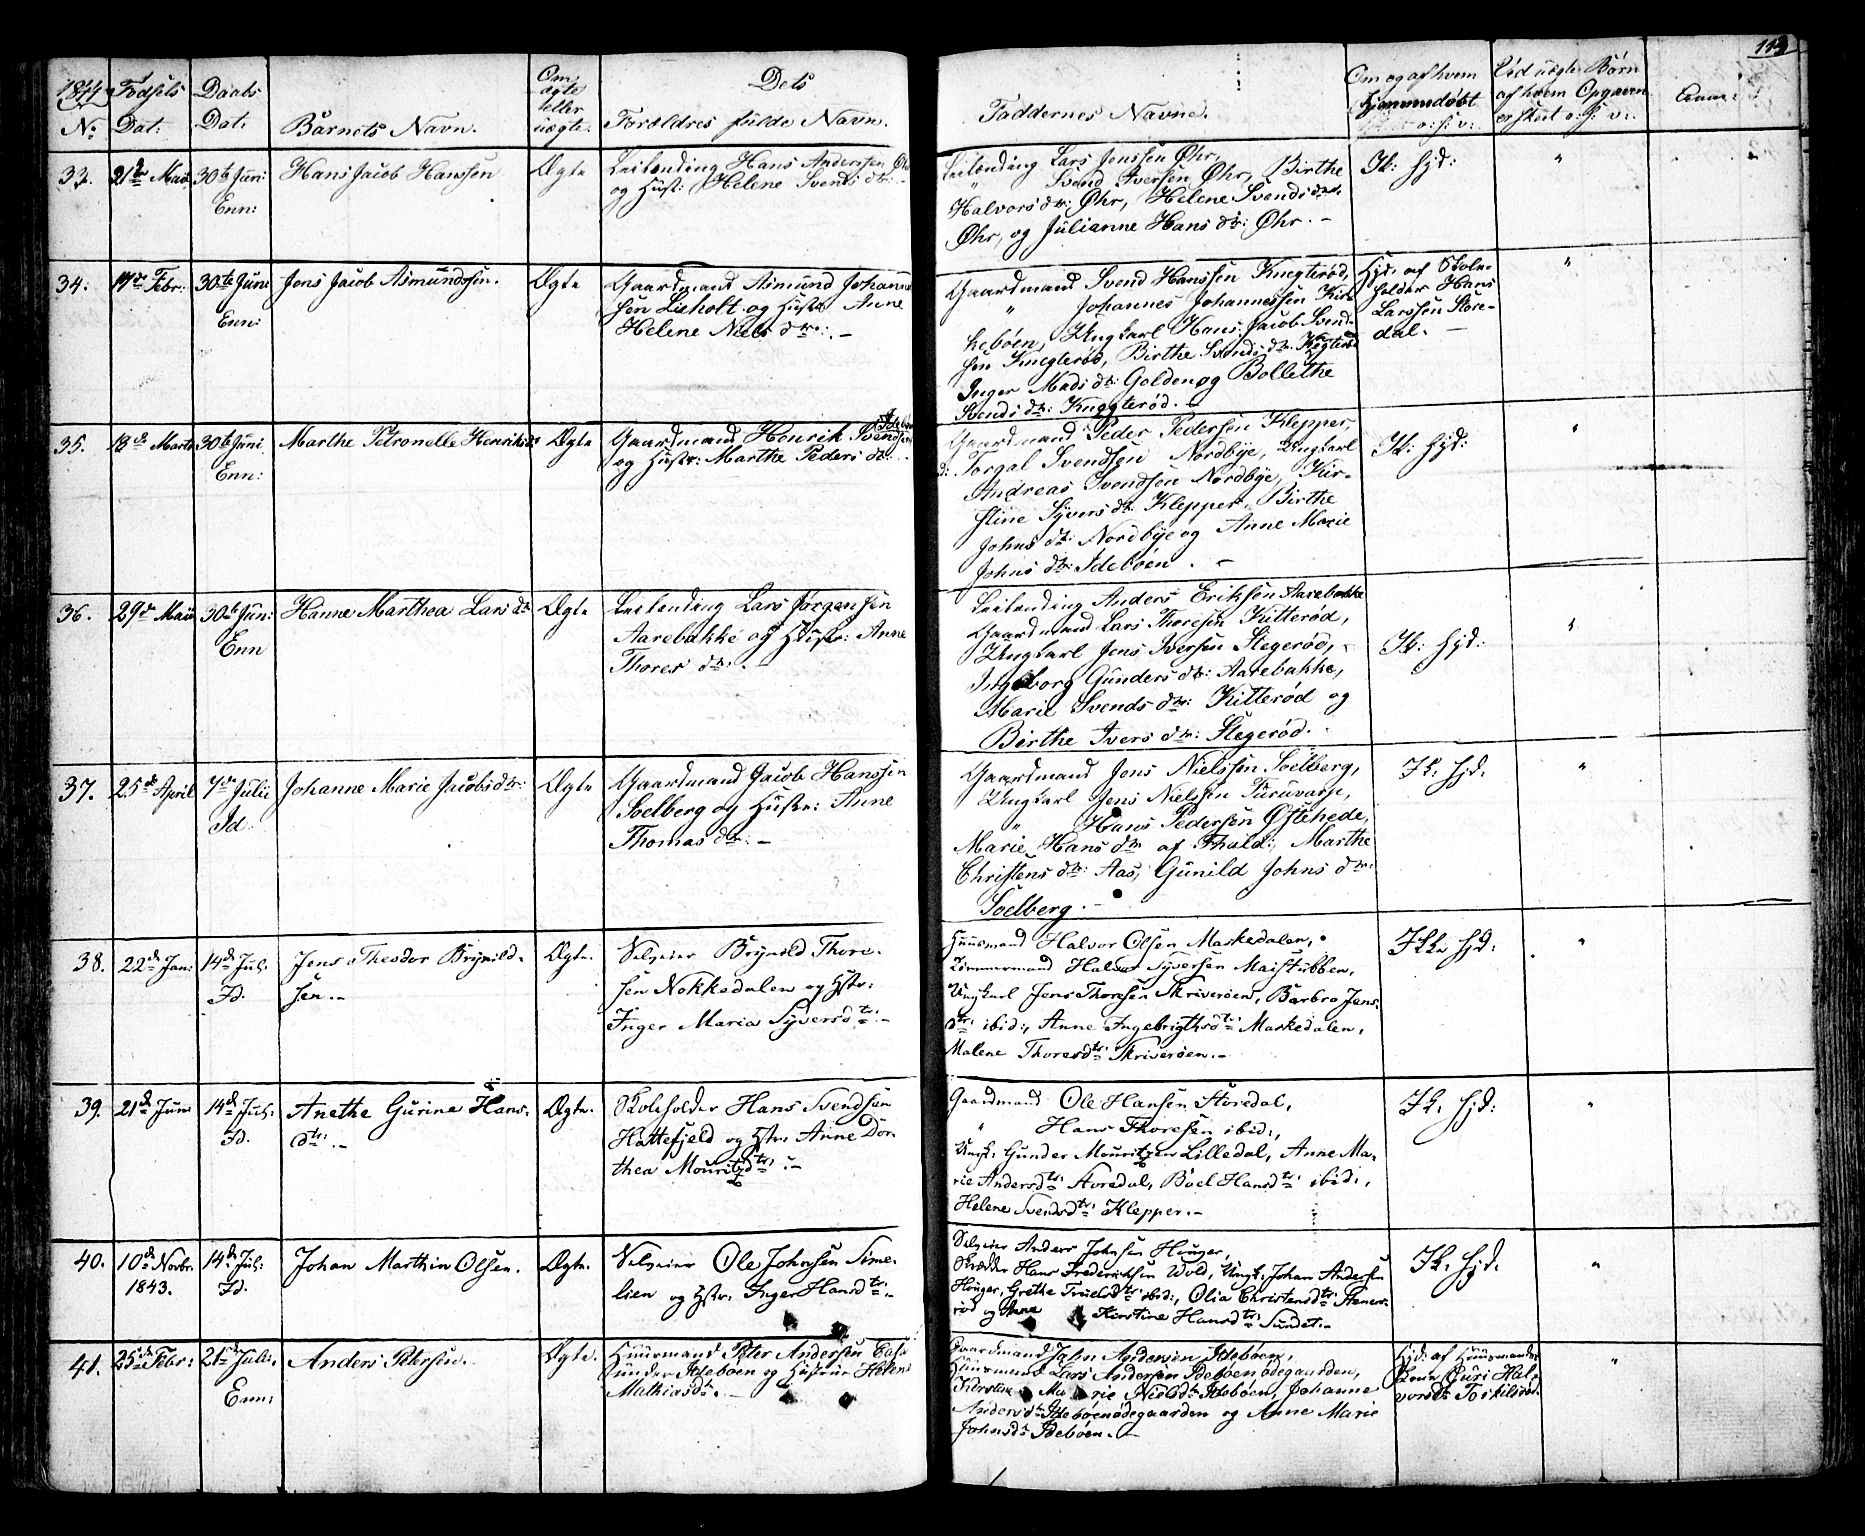 1844
No
Fødsels
Dat:
Daabs
Dat:
Barnets Navn.
Om
ægte
eller
uægte.
Dets
Forældres fulde Navn.
Faddernes Navne.
Om og af hvem
hjemmedøbt
o: s: v:
Ved uægte Børn
af hvem Opgaven
er skeet o: s: v:.
113
33.
21de Mai
30te Juni
Enn:
Hans Jacob Hanssen
Ægte
Leilending Hans Anderssen Øhr
og Hust: Helene Svends dtr: -
Leilending Lars Jenssen Øhr,
" Svend Iversen Øhr, Birthe
Halvors dtr: Øhr, Helene Svends dtr.
Øhr, og Julianne Hans dtr: Øhr. -
Ik: Hjd:
"
34.
19de Febr:
30te Juni
Enn:
Jens Jacob Asmundssen.
Ægte
Gaardmand Asmund Johannes
sen Lieholt og Hustr: Anne
Helene Niels dtr: -
Gaardmand Svend Hanssen Knegterød,
" Johannes Johannessen Kir-
kebøen, Ungkarl Hans Jacob Svend-
sen Knegterød, Birthe Svends dtr. Knegterød
Inger Mads dtr: Golden og Bollethe
Svends dtr: Knegterød. -
Hjd. af Skole-
holder Hans
Larssen Store-
dal. -
"
35.
18de Marts
30te Juni
Enn:
Marthe Petronelle Henriksdtr
Ægte
Gaardmand Henrik Svendsen
Idebøen
og Hustr: Marthe Peders dtr: -
Gaardmand Peder Pedersen Klepper,
d: Torgal Svendsen Nordbye, Ungkarl
Andreas Svendsen Nordbye, Kir-
stine Syvers dtr. Klepper, Birthe
Johns dtr: Nordbye og Anne Marie
Johns dtr: Idebøen. -
Ik: Hjd:
"
36.
29de Mai
30te Jun:
Enn
Hanne Marthea Lars dtr
Ægte
Leilending Lars Jørgensen
Aarebakke og Hustr: Anne
Thores dtr: -
Leilending Anders Eriksen Aarebakke
Gaardmand Lars Thoresen Kitterød,
Ungkarl Jens Iversen Stegerød,
Ingeborg Gunders dtr: Aarebakke,
Marie Svends dtr: Kitterød og
Birthe Ivers dtr: Stegerød.
Ik: Hjd:
"
37.
25de April
7de Julii
Id.
Johanne Marie Jacobs dtr:
Ægte
Gaardmand Jacob Hanssen
Soelberg og Hustr: Anne
Thomas dtr: -
Gaardmand Jens Nielssen Soelberg,
Ungkarl Jens Nielssen Furuvarp,
" Hans Pedersen Østehede,
Marie Hans dtr af Fhald:, Marthe
Christens dtr: Aas, Gunild Johns dtr:
Soelberg. -
Ik: Hjd.
"
38.
22de Jan:
14de Jul:
Id.
Jens Theodor Brynild-
sen. -
Ægte.
Selveier Brynild Thore-
sen Nokkedalen og Hstr:
Inger Maria Syversdtr. -
Huusmand Halvor Olsen Maskedalen,
Tømmermand Halvor Syversen Maistubben,
Ungkarl Jens Thoresen Skriverøen, Barbro Jens-
dtr. ibid:, Anne Ingebrigthsdtr Maskedalen,
Malene Thoresdtr Skriverøen. -
Ik. Hjd:
"
39.
21de Juni
14de Jul:
Id.
Anethe Gurine Hans-
dtr. -
Ægte.
Skoleholder Hans Svendsen
Hattefjeld og Hstr. Anne Dor-
thea Mouritzdtr. -
Gaardmand Ole Hansen Storedal,
" Hans Thoresen ibid:,
Ungk: Gunder Mouritzen Lilledal, Anne Ma-
rie Andersdtr. Storedal, Boel Hansdtr. ibid:,
Helene Svendsdtr Klepper. -
Ik. Hjd:
"
40.
10de Novbr.
1843.
14de Jul:
Id.
Johan Marthin Olsen.
Ægte.
Selveier Ole Johnsen Sime-
lien og Hstr. Inger Hansdtr. -
Selveier Anders Johnsen Houger,
Skrædder Hans Frederiksen Wold, Ungk. Johan Andersen
Houger, Grethe Truelsdtr. ibid:, Olia Christensdtr. Steners-
rød og Anne Kirstine Hansdtr. Sundet. -
Ik. Hjd.
"
41.
25de Febr:
21de Julii,
Enn:
Anders Petersen.
Ægte.
Huusmand Peter Andersen
under Idebøen og Hustrue Helene
Mathiasdtr. -
Gaardmand John Andersen Idebøen,
Huusmand Lars Andersen Idebøenødegaarden,
Kirstine Marie Nielsdtr Idebøen, Johanne
Andersdtr Idebøenødegaarden og Anne Marie
Johnsdtr Idebøen. -
Hjd: af Huusmands
Kone Guri Hal-
vorsdtr Torkilsrød.
"